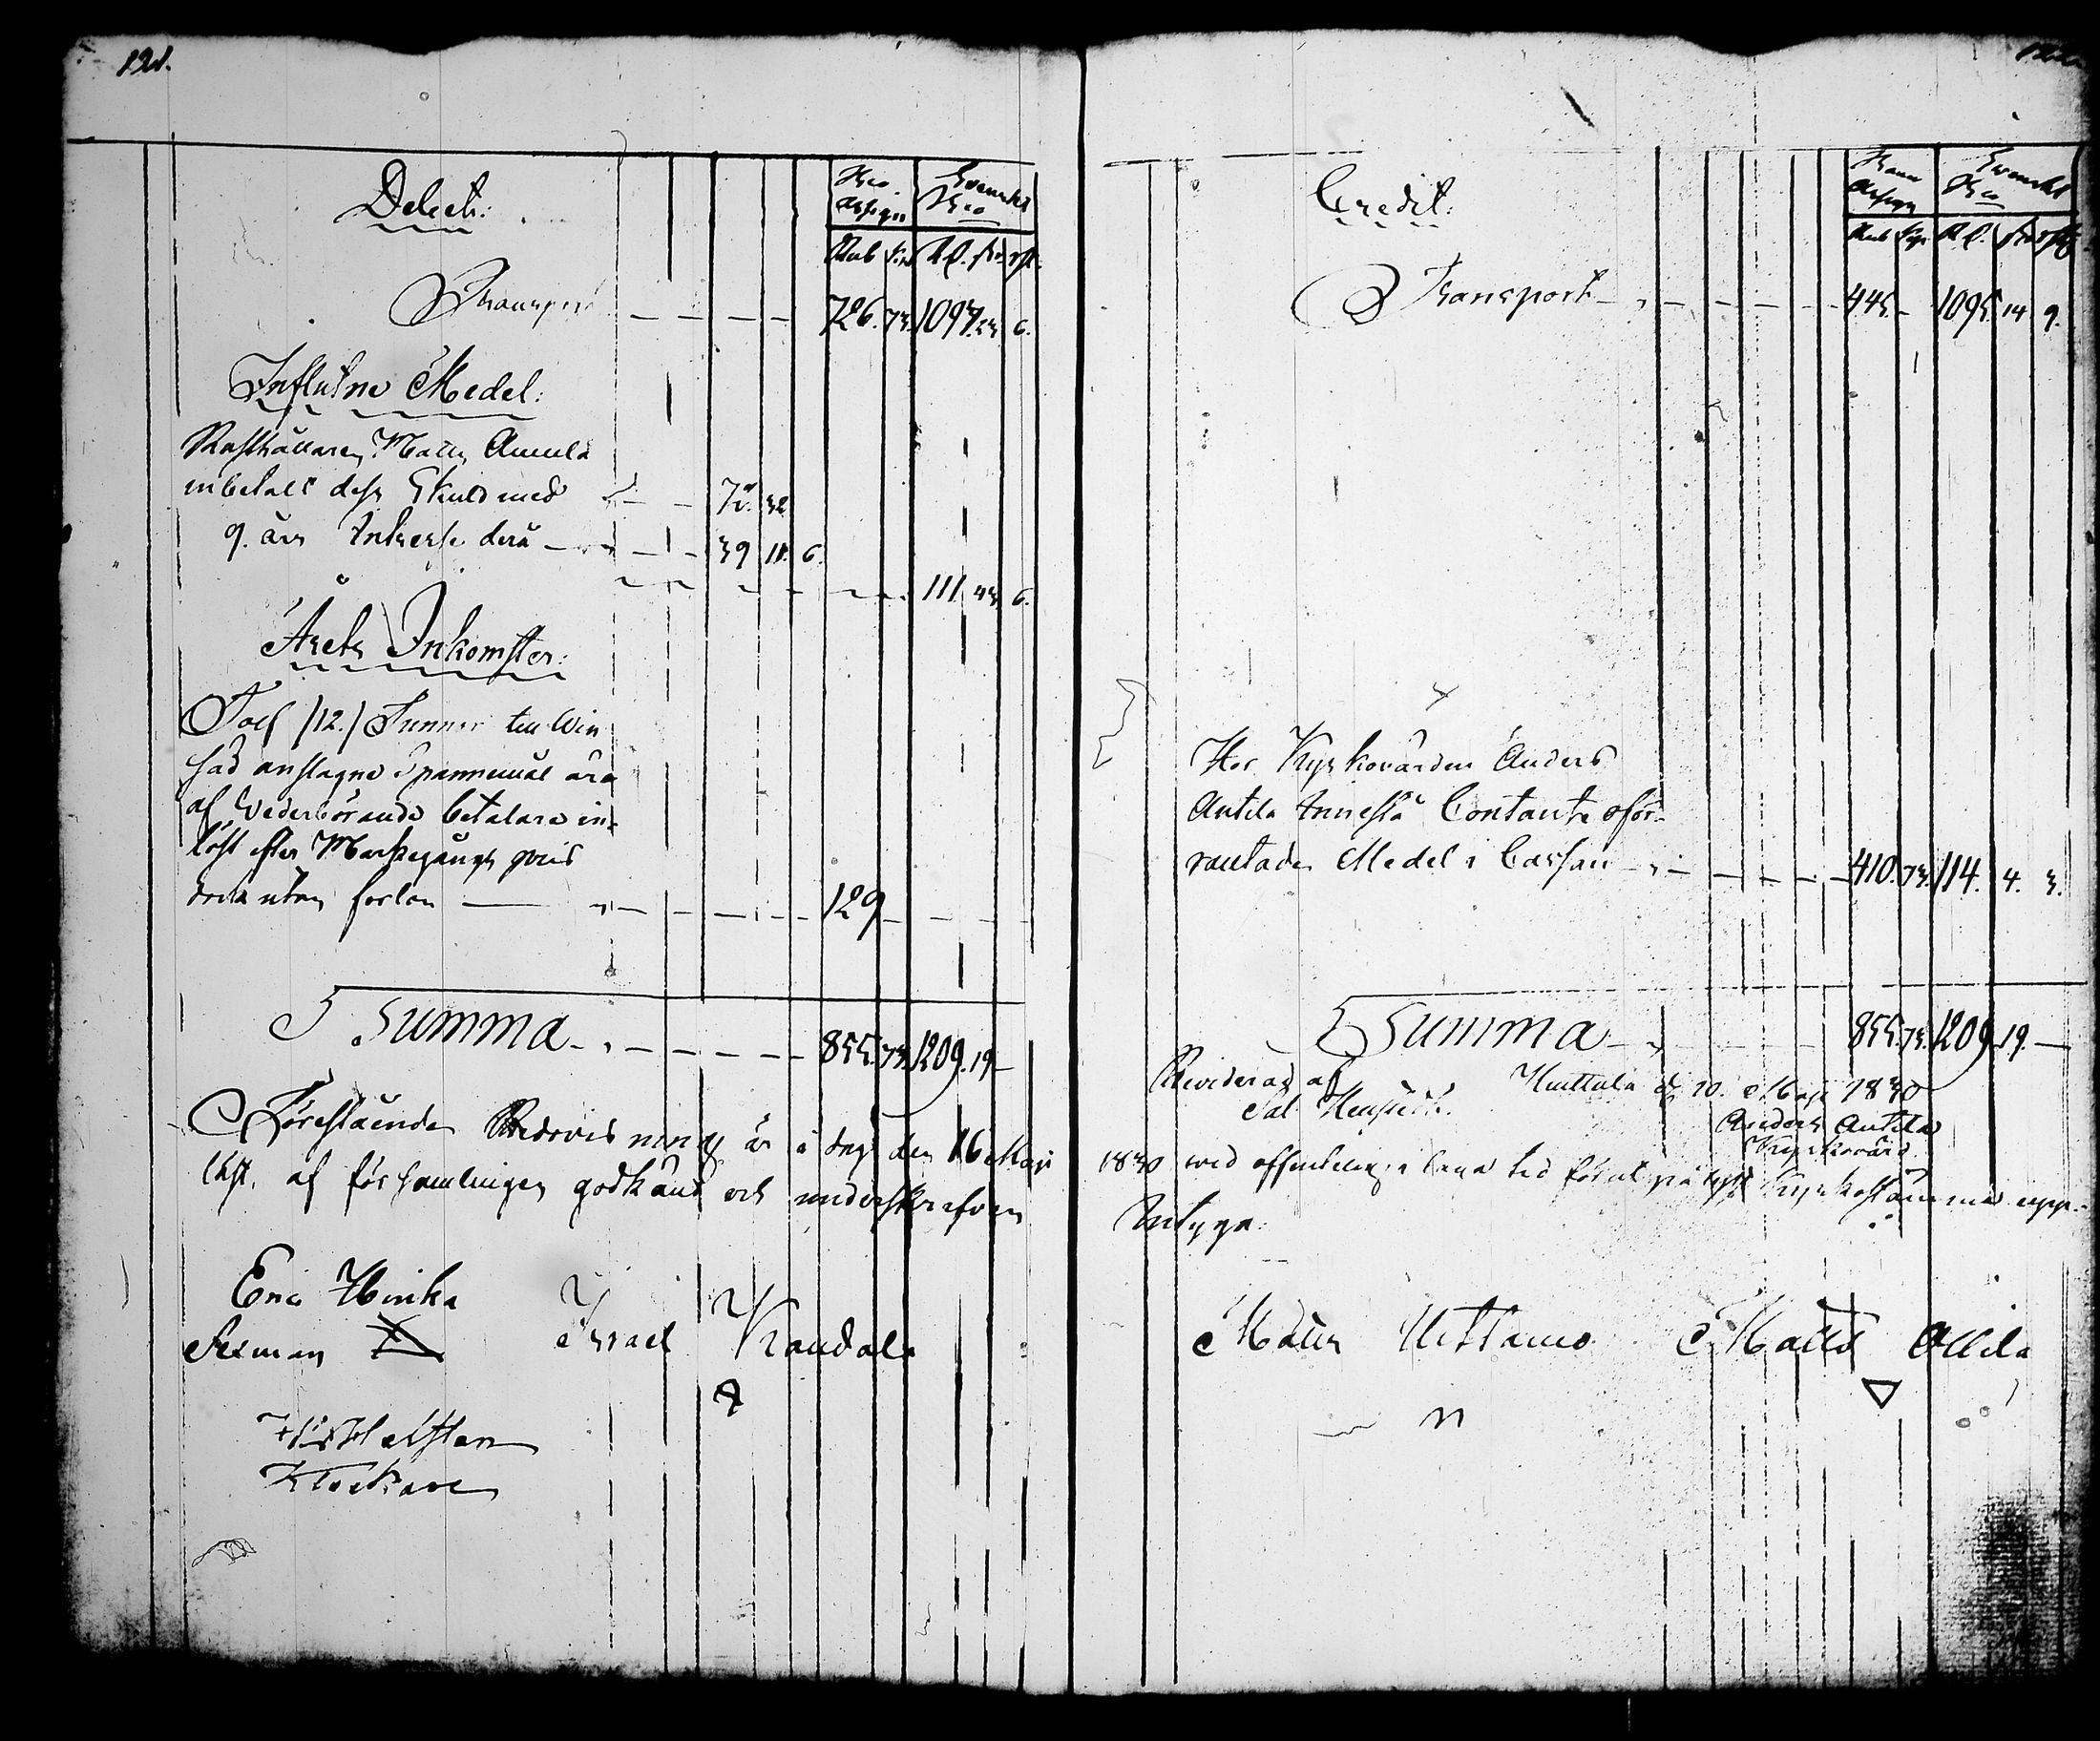 121.
Debet:
Bco Assign
Svenskt Bco
Rub Kop Rd. sk rst.
Transport 726. 73. 1097. 23 6.
Influtne Medel:
Rusthållaren Matts Annila
inbetalt dess Skuld med 72. 32
9. års Intresse derå 39 11. 6.
111 43 6.
Årets Inkomster:
Tolf /12./ Tunnor till Win
säd anslagne Spannemål äro
af Wederbörande betalare in-
löst efter Markegångs pris
dock utan forlön 129
Summa 855. 73. 1209. 19
Förestående Redovisning är i dag den 16 Maji
läst, af församlingen godkänd och underskrefven
Eric Hinka Israel Kandala
Sexman
Hellsten
Klockare
Credit:
Banco Assign
Svenskt Bco
Rub Kop Rd. sk rst
Transport 445. 1095 14 9.
Hos Kyrkovärden Anders
Antila Innestå Contante oför-
räntade Medel i Cassan 410. 73. 114. 4. 3.
Summa 855. 73. 1209 19.
Revideras af Huittula d. 10. Maji 1830
Sal. Anders Antila
Kyrkovärd
1830 wid offentelig i laga tid förut pålyst Kyrkostämma
Intyga:
Matts Uittamo Matts Ollila
n